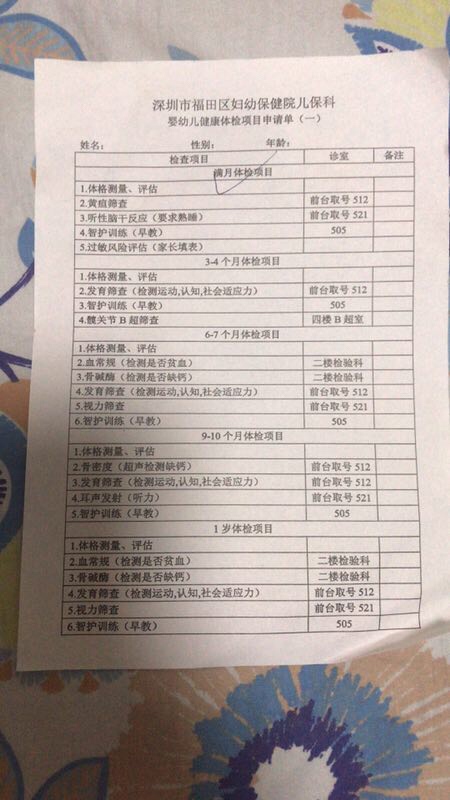 深圳市福田区妇幼保健院儿保科
婴幼儿健康体检项目申请单（一）
姓名： 性别： 年龄：
检查项目 诊室 备注
满月体检项目
1.体格测量、评估
2.黄疸筛查 前台取号 512
3.听性脑干反应（要求熟睡） 前台取号 521
4.智护训练（早教） 505
5.过敏风险评估（家长填表）
3-4 个月体检项目
1.体格测量、评估
2.发育筛查（检测运动,认知,社会适应力） 前台取号 512
3.智护训练（早教） 505
4.髋关节 B 超筛查 四楼 B 超室
6-7 个月体检项目
1.体格测量、评估
2.血常规（检测是否贫血） 二楼检验科
3.骨碱酶（检测是否缺钙） 二楼检验科
4.发育筛查（检测运动,认知,社会适应力） 前台取号 512
5.视力筛查 前台取号 521
6.智护训练（早教） 505
9-10 个月体检项目
1.体格测量、评估
2.骨密度（超声检测缺钙） 前台取号 512
3.发育筛查（检测运动,认知,社会适应力） 前台取号 512
4.耳声发射（听力） 前台取号 521
5.智护训练（早教） 505
1 岁体检项目
1.体格测量、评估
2.血常规（检测是否贫血） 二楼检验科
3.骨碱酶（检测是否缺钙） 二楼检验科
4.发育筛查（检测运动,认知,社会适应力） 前台取号 512
5.视力筛查 前台取号 521
6.智护训练（早教） 505